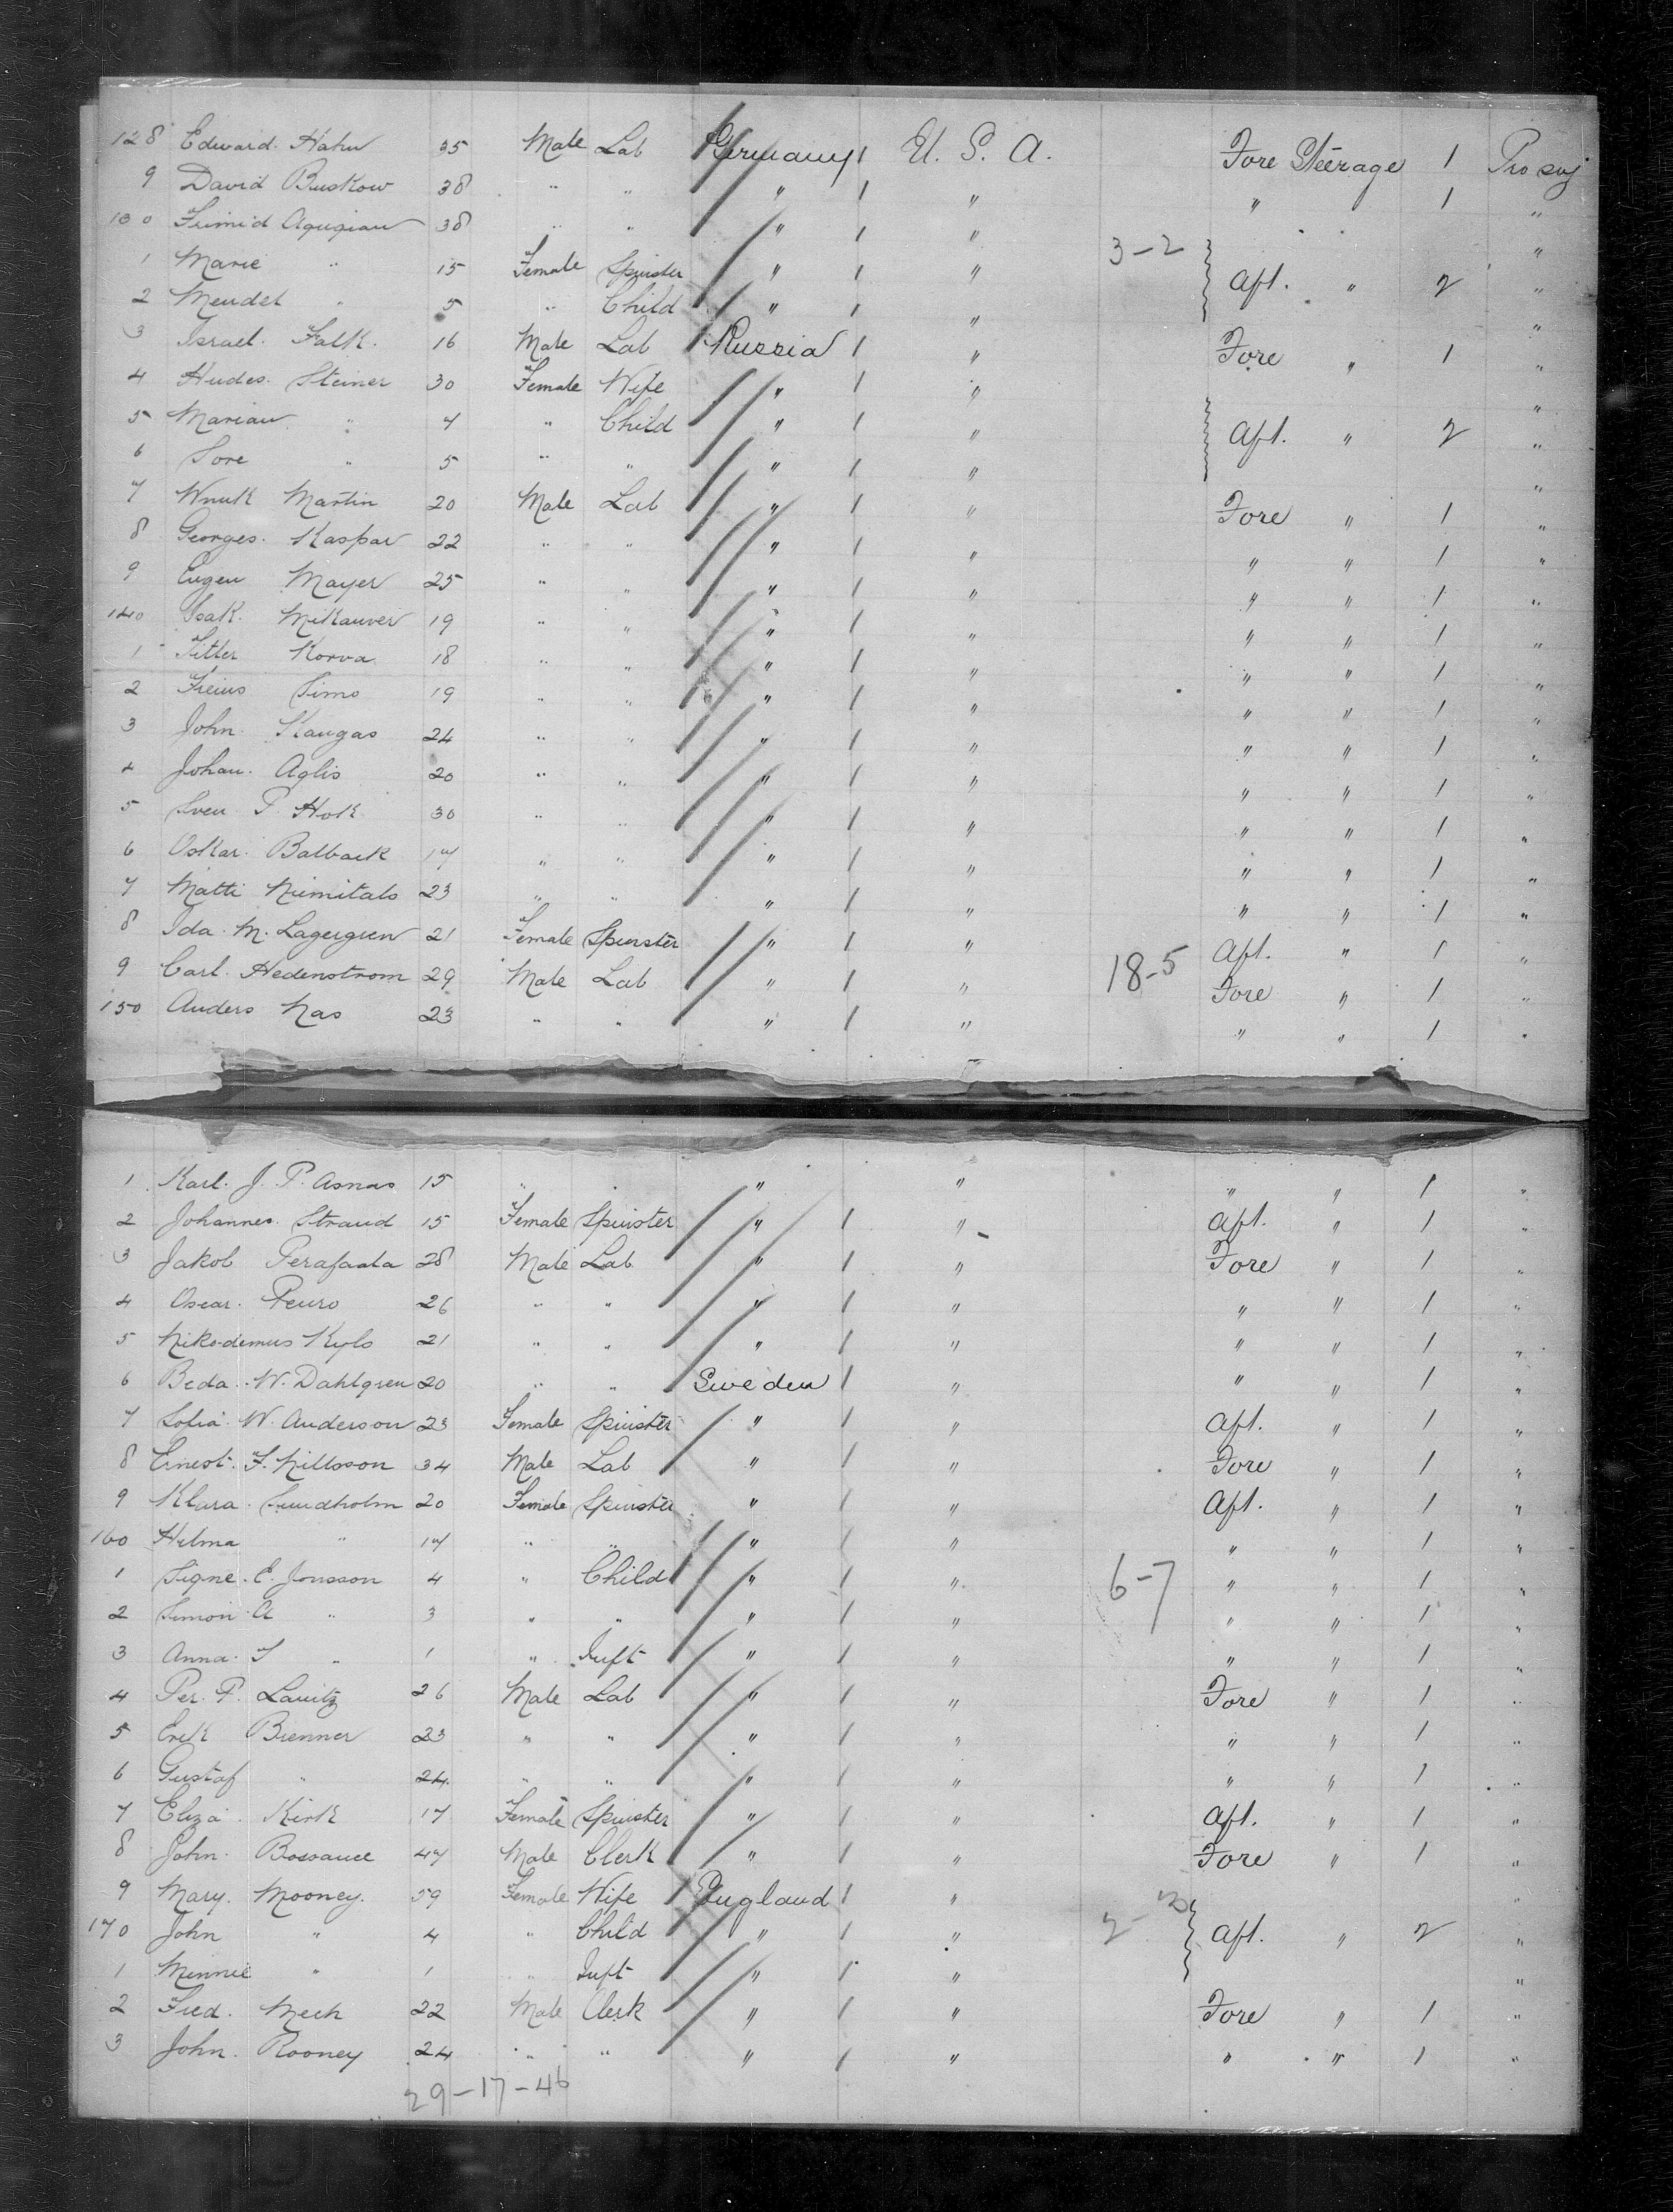 128 Edward. Hahn 35 Male Lab Germany 1 U. S. A. Fore Steerage 1 Pro soj
9 David Buskow 38 " " " 1 " " 1 "
130 Agugian 38 " " " 1 " "
1 Marie " 15 Female Spinster " 1 " 3-2 Aft. " 2 "
2 Mendel " 5 " Child " 1 " "
3 Israel. Falk. 16 Male Lab Russia 1 " Fore " 1 "
4 Hudes. Steiner 30 Female Wife " 1 " "
5 Marian " 4 " Child " 1 " Aft. " 2 "
6 Sore " 5 " " " 1 " "
7 Wnuk Martin 20 Male Lab " 1 " Fore " 1 "
8 Georges. Kaspar 22 " " " 1 " " " 1 "
9 Eugen Mayer 25 " " " 1 " " " 1 "
140 Isak. Mikauver 19 " " " 1 " " " 1 "
1 Korva 18 " " " 1 " " " 1 "
2 Simo 19 " " " 1 " " " 1 "
3 John. Kangas 24 " " " 1 " " " 1 "
4 Johan. Aglis 20 " " " 1 " " " 1 "
5 Sven P. Hok 30 " " " 1 " " " 1 "
6 Oskar. Balback 17 " " " 1 " " " 1 "
7 Matti Niemitalo 23 " " " 1 " " " 1 "
8 Ida M. Lagergren 21 Female Spinster " 1 " Aft. " 1 "
9 Carl. Hedenstrom 29 Male Lab " 1 " 18-5 Fore " 1 "
150 Anders Nas 23 " " " 1 " " " 1 "
1 Karl. J. P. Asnas 15 " " " " " 1 "
2 Johannes. Strand 15 Female Spinster " 1 " Aft. " 1 "
3 Jakob Perafaata 28 Male Lab " 1 " Fore " 1 "
4 Oscar. 26 " " " 1 " " " 1 "
5 Nikodemus Kylo 21 " " " 1 " " " 1 "
6 Beda. W. Dahlgren 20 " " Sweden 1 " " " 1 "
7 Sofia. W. Anderson 23 Female Spinster " 1 " Aft. " 1 "
8 Ernest. F. Nillsson 34 Male Lab " 1 " Fore " 1 "
9 Klara. Sundholm 20 Female Spinster " 1 " Aft. " 1 "
160 Hilma " 17 " " " 1 " " " 1 "
1 Signe. E. Jonsson 4 " Child " 1 " 6-7 " " 1 "
2 Simon A " 3 " " " 1 " " " 1 "
3 Anna. S " 1 " Inft " 1 " " " 1 "
4 Per. P. Lauitz 26 Male Lab " 1 " Fore " 1 "
5 Erik Brenner 23 " " " 1 " " " 1 "
6 Gustaf " 24 " " " 1 " " " 1 "
7 Eliza. Kirk 17 Female Spinster " 1 " Aft. " 1 "
8 John. Bossance 47 Male Clerk " 1 " Fore " 1 "
9 Mary. Mooney. 59 Female Wife England 1 " "
170 John " 4 " Child " 1 " Aft. " 2 "
1 Minnie " 1 " Inft " 1 " "
2 Fred. Mech 22 Male Clerk " 1 " Fore " 1 "
3 John. Rooney 24 " " " 1 " " " 1 "
29-17-46